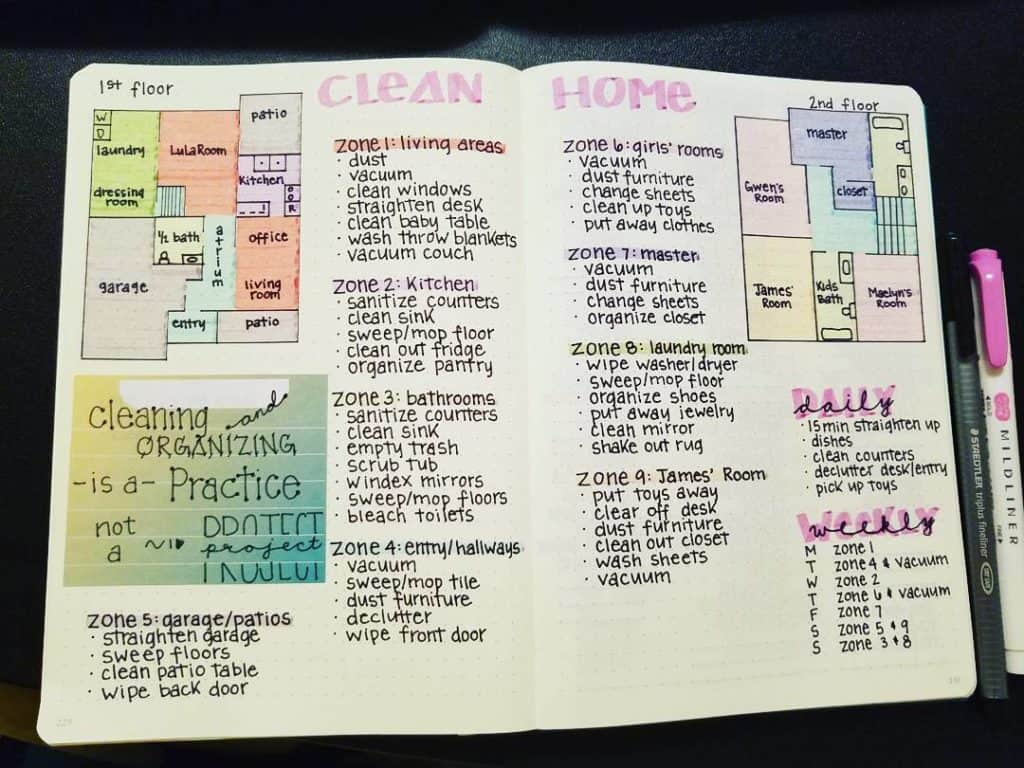 CLEAN HOME
1st floor
W
D
laundry
dressing room
LulaRoom
patio
Kitchen
½ bath
atrium
office
living room
garage
entry
patio
cleaning and
ORGANIZING
-is a- Practice
not
a
project
zone 1: living areas
· dust
· vacuum
· clean windows
· straighten desk
· clean baby table
· wash throw blankets
· vacuum couch
zone 2: Kitchen
· sanitize counters
· clean sink
· sweep/mop floor
· clean out fridge
· organize pantry
zone 3: bathrooms
· sanitize counters
· clean sink
· empty trash
· scrub tub
· windex mirrors
· sweep/mop floors
· bleach toilets
zone 4: entry/hallways
· vacuum
· sweep/mop tile
· dust furniture
· declutter
· wipe front door
zone 5: garage/patios
· straighten garage
· sweep floors
· clean patio table
· wipe back door
zone 6: girls' rooms
· vacuum
· dust furniture
· change sheets
· clean up toys
· put away clothes
zone 7: master
· vacuum
· dust furniture
· change sheets
· organize closet
zone 8: laundry room
· wipe washer/dryer
· sweep/mop floor
· organize shoes
· put away jewelry
· clean mirror
· shake out rug
zone 9: James' Room
· put toys away
· clear off desk
· dust furniture
· clean out closet
· wash sheets
· vacuum
2nd floor
master
Gwen's Room
closet
James' Room
Kids Bath
Maelyn's Room
daily
· 15 min straighten up
· dishes
· clean counters
· declutter desk/entry
· pick up toys
weekly
M zone 1
T zone 4 & vacuum
W zone 2
T zone 6 & vacuum
F zone 7
S zone 5 & 9
S zone 3 & 8
STAEDTLER triplus fineliner
MILDLINER